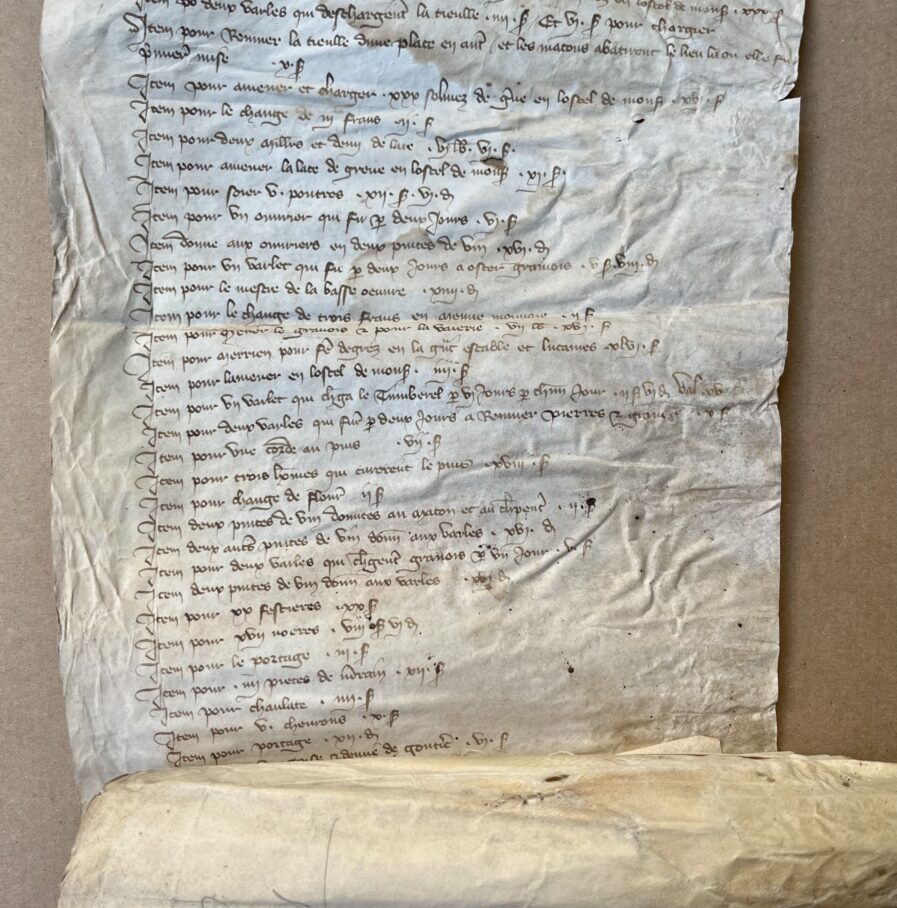 en lostel de mons̃ · xxx s̃
Itẽ po deux varles qui deschargent la tieulle · iiij · s̃ Et vj · s̃ pour chargier
Item pour Remuer la tieulle dune place en autˀ et les macons abatirent le lieu la ou elle fu
mise · x · s̃
Item pour amener et charger · xxx solivez de en lostel de mons̃ · xvj · s̃
Item pour le change de iij frans · ij · s̃
Item pour deux milliers et demi de late · vj lb · vj · s̃ ·
Item pour amener la late de greve en lostel de mons̃ · xj · s̃ ·
Item pour soier v · poutres · xij · s̃ · vj · d̃
Item pour vn ouurier qui fu ꝑ deux Jours · vj · s̃
Item donne aux ouuriers en deux pintes de vin · xvj · d̃
Item pour vn varlet qui fu ꝑ deux Jours a oster gravois · v s̃ viij · d̃
Item pour le mestre de la basse oeuure · xiiij · d̃
Item pour le change de trois frans en menue monnoie · ij s̃
Item pour le gravois · vij lb · xvj · s̃
Item pour merrien pour fẽ degrez en la estable et lucarnes · xlvj · s̃
Item pour lamener en lostel de mons̃ · iiij · s̃
Item pour vn varlet qui chˀga le Tumberel ꝑ vj Jours ꝑ chũn Jour · ij s̃ vj d̃ val · xv
Item pour deux varles qui furˀ ꝑ deux Jours a Remuer pierres · x s̃
Item pour vne corde au puis · vij · s̃
Item pour trois hõmes qui curerent le puis · xviij · s̃
Item pour change de ij s̃
Item deux pintes de vin donnees au macon et au chˀpentˀ · ij · s̃
Item deux autˀs pintes de vin donn̄ aux varles · xvj · d̃
Item pour deux varles qui chˀgent gravois ꝑ vn Jour · v · s̃
Item deux pintes de vin donn̄ aux varles · xvj d̃
Item pour xx festieres · xx s̃
Item pour xvij noeres · viij s̃ vj d̃
Item pour le portage · iij · s̃
Item pour · iiij pieces de · xij · s̃
Item pour chanlate · iiij · s̃
Item pour v · cheurons · x · s̃
Item pour portage · xij · d̃
et demie de · vj · s̃